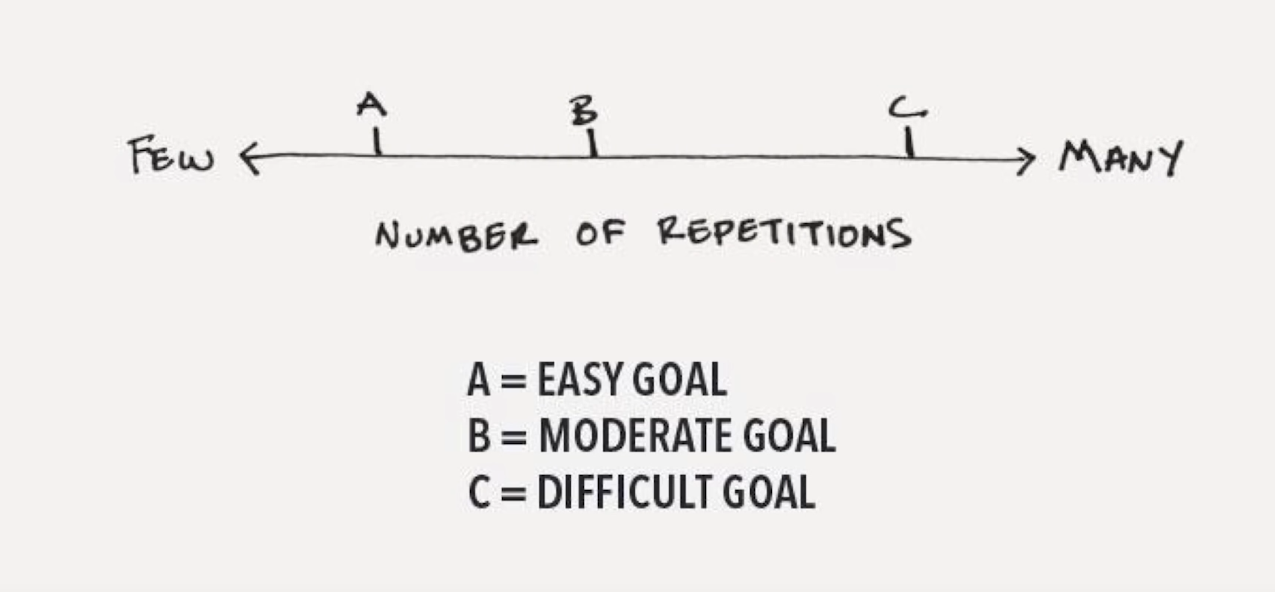 A B C
FEW MANY
NUMBER OF REPETITIONS
A = EASY GOAL
B = MODERATE GOAL
C = DIFFICULT GOAL